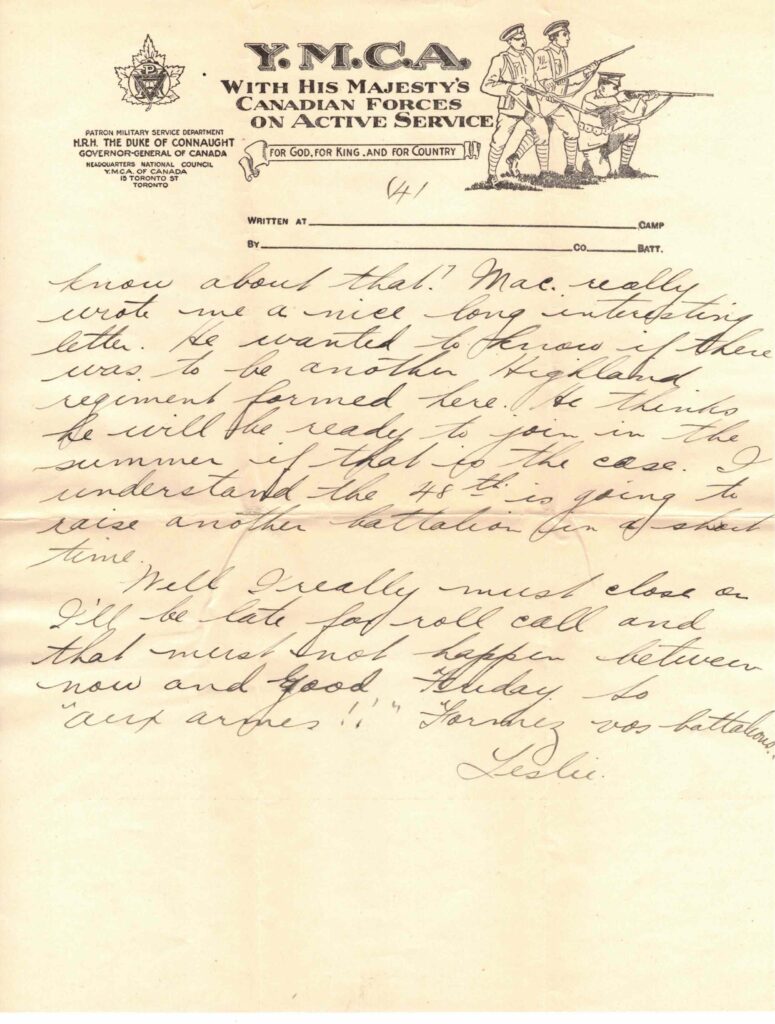 Y.M.C.A.
WITH HIS MAJESTY'S
CANADIAN FORCES
ON ACTIVE SERVICE
FOR GOD, FOR KING, AND FOR COUNTRY
PATRON MILITARY SERVICE DEPARTMENT
H.R.H. THE DUKE OF CONNAUGHT
GOVERNOR-GENERAL OF CANADA
HEADQUARTERS NATIONAL COUNCIL
Y.M.C.A. OF CANADA
15 TORONTO ST
TORONTO
(4)
WRITTEN AT CAMP
BY CO. BATT.
know about that? Mac. really
wrote me a nice long interesting
letter. He wanted to know if there
was to be another Highland
regiment formed here. He thinks
he will be ready to join in the
summer if that is the case. I
understand the 48th is going to
raise another battalion in a short
time.
Well I really must close or
I'll be late for roll call and
that must not happen between
now and Good Friday so
"aux armes!!" "Formez vos battalions!!
Leslie.